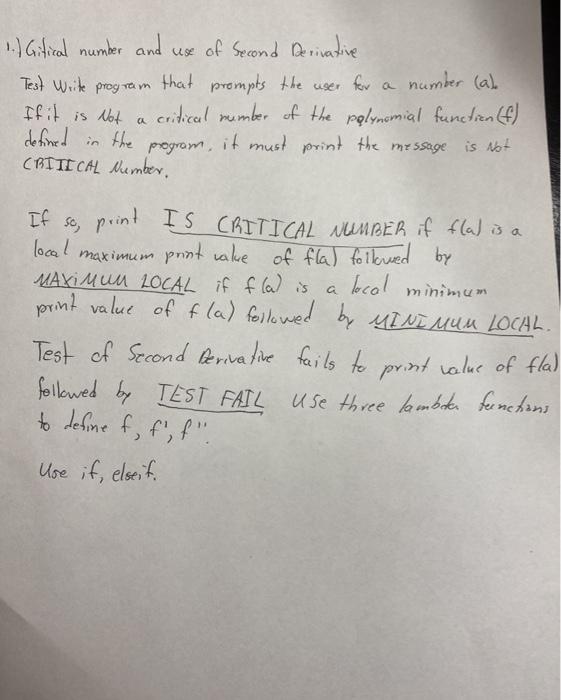 1.) Critical number and use of Second Derivative
Test Write program that prompts the user for a number (a).
If it is Not a critical number of the polynomial function (f)
defined in the program, it must print the message is Not
CRITICAL Number.
If so, print IS CRITICAL NUMBER if f(a) is a
local maximum print value of f(a) followed by
MAXIMUM LOCAL if f(a) is a local minimum
print value of f(a) followed by MINIMUM LOCAL.
Test of Second Derivative fails to print value of f(a)
followed by TEST FAIL Use three lambda functions
to define f, f', f".
Use if, elseif.